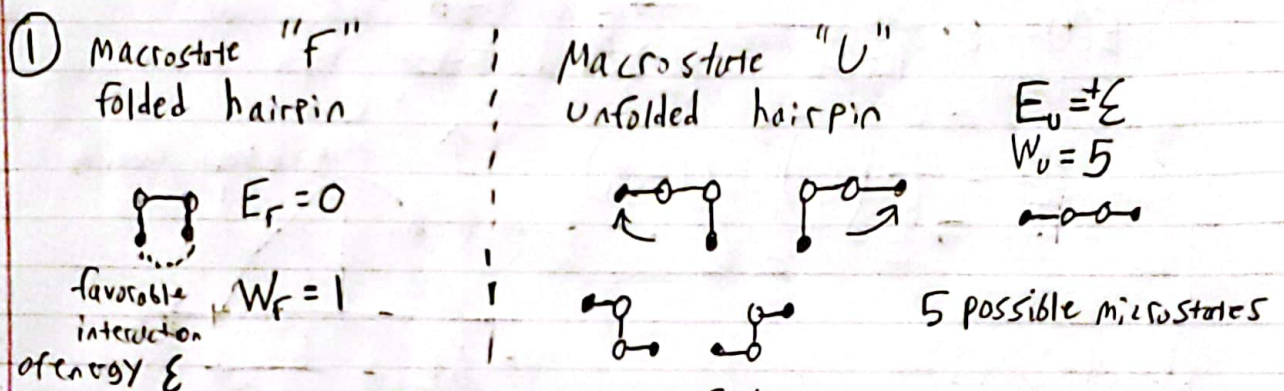 ① Macrostate "F"
folded hairpin
E_F = 0
favorable
interaction
of energy ε
W_F = 1
Macrostate "U"
unfolded hairpin
E_U = +ε
W_U = 5
5 possible microstates